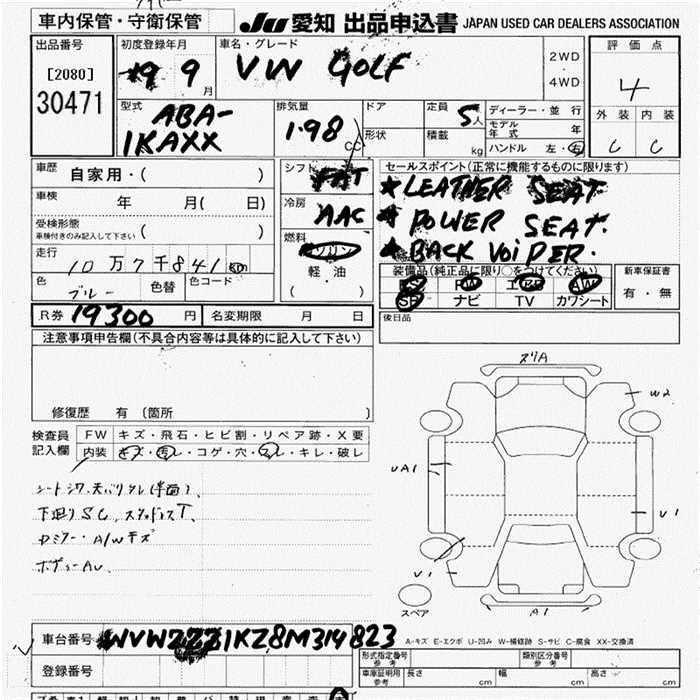 車内保管・守衛保管
JU 愛知 出品申込書 JAPAN USED CAR DEALERS ASSOCIATION
出品番号
[2080]
30471
初度登録年月
9 9月
車名・グレード
VW GOLF
2WD
・
4WD
評価点
4
外装 内装
C C
型式
ABA-
1KAXX
排気量
1.98
CC
ドア
形状
定員
5人
積載
kg
ディーラー・並行
モデル年式 年
ハンドル 左・右
車歴
自家用・( )
車検
年 月( 日)
受検形態
車検付きのみ記入して下さい ( )
走行
10万7千841km
色
ブルー
色替
色コード
シフト
FAT
冷房
AAC
燃料
ガソリン
軽・油
( )
セールスポイント(正常に機能するものに限ります)
★LEATHER SEAT
★POWER SEAT.
★BACK VOiPER.
装備品(純正品に限り○をつけてください)
PS PW エアB AW
SR ナビ TV カワシート
新車保証書
有・無
R券 19300円
名変期限 月 日
後日品
注意事項申告欄(不具合内容等は具体的に記入して下さい)
修復歴 有 (箇所 )
検査員
記入欄
FW キズ・飛石・ヒビ割・リペア跡・X要
内装 キズ・汚レ・コゲ・穴・スレ・キレ・破レ
シートシワ、天バリタレ(半面)、
下廻りSC、スタッドレスT、
Dミラー・A/Wキズ
ボディーAU、
ズリA
W2
UA1
U1
V1
A1
スペア
車台番号
WVWZZZ1KZ8M314823
A-キズ E-エクボ U-凹み W-補修跡 S-サビ C-腐食 XX-交換済
登録番号
形式指定番号
参考
類別区分番号
参考
車庫証明用
参考
長さ cm
幅 cm
高さ cm